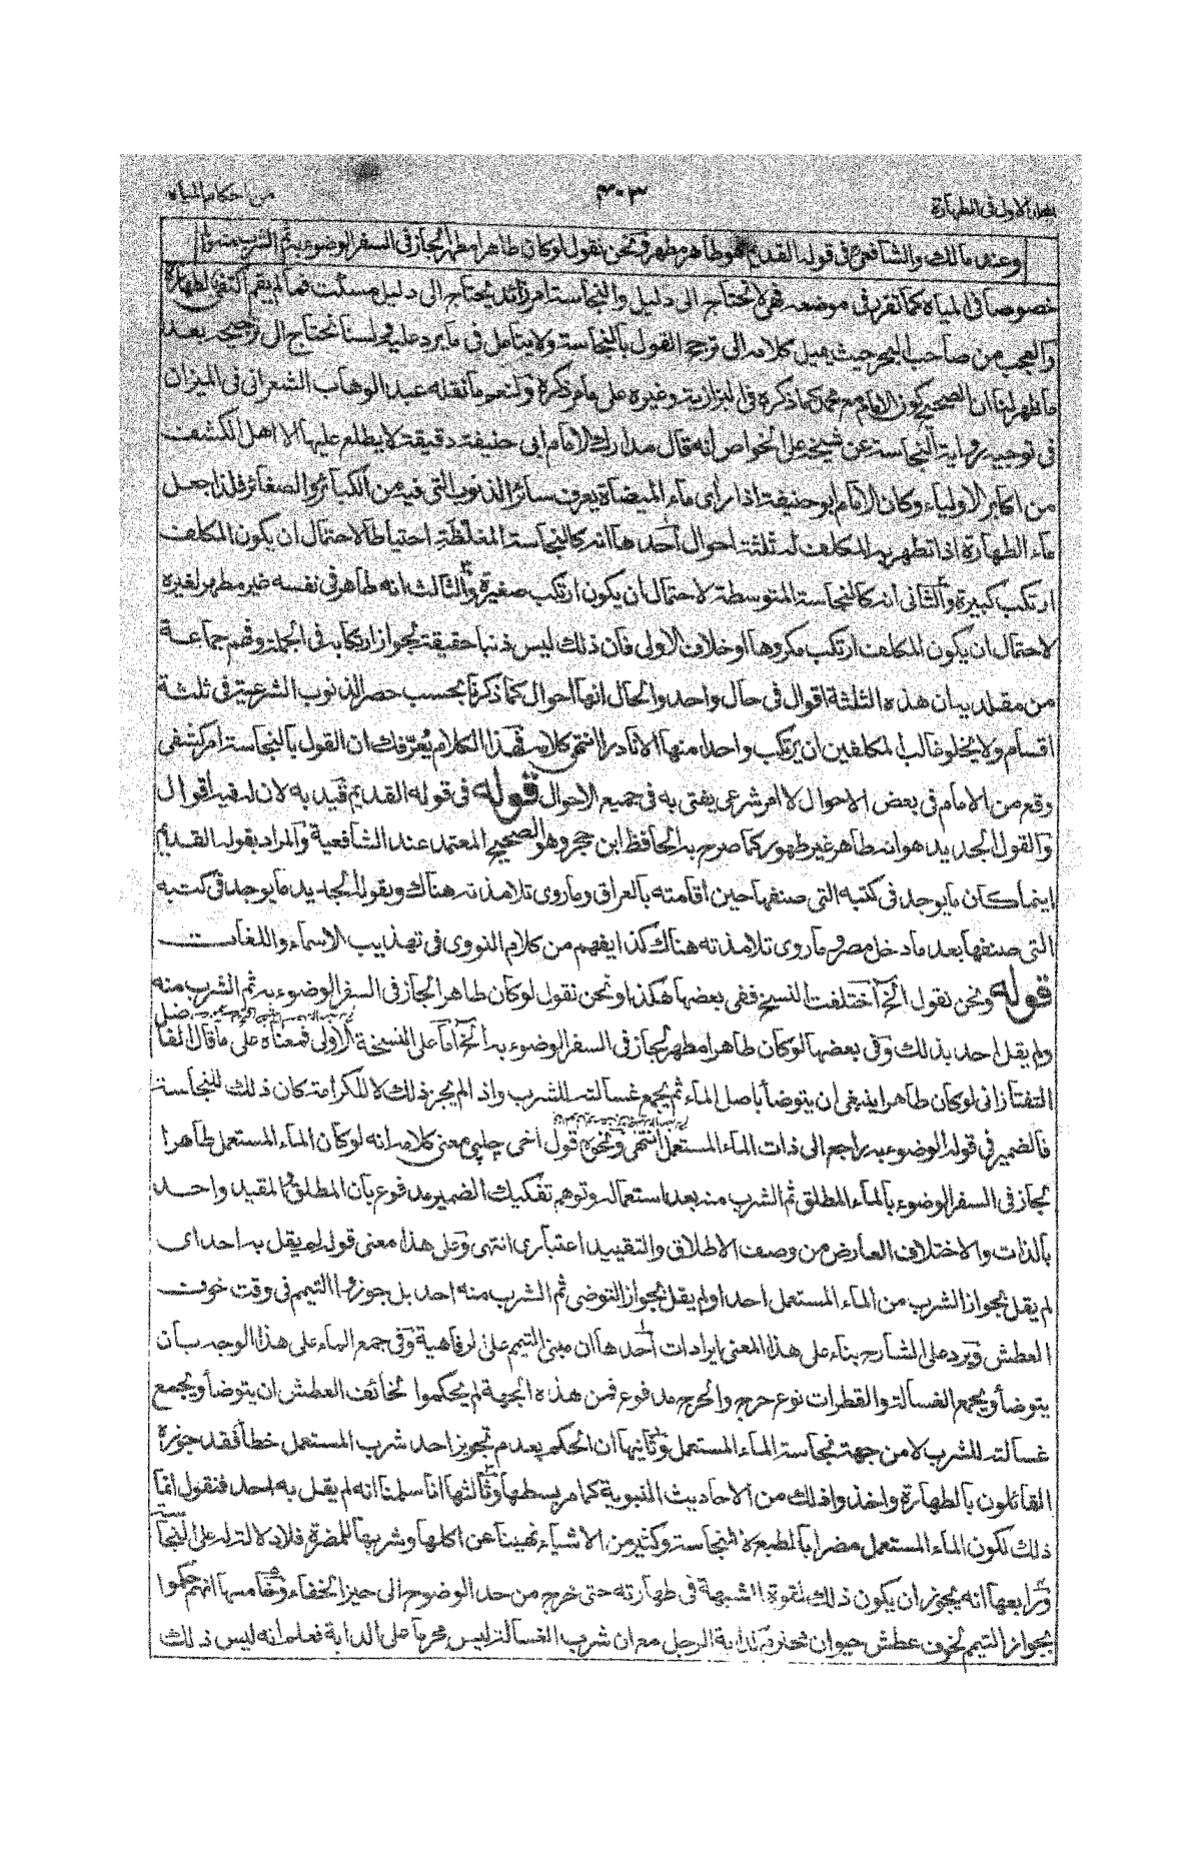 المجلد الاول فى الطهارة
٤٠٣
من احكام المياه
وعند مالك والشافعى فى قوله القديم هو طاهر مطهر ونحن نقول لو كان طاهرا مطهرا لجاز فى السفر الوضوء به ثم الشرب منه
خصوصا فى المياه كما تقرر فى موضعه فهى لا تحتاج الى دليل والنجاسة امر زائد يحتاج الى دليل مستأنف فما لم يقم اكتفى الطهارة
والعجب من صاحب البحر حيث يميل كلامه الى ترجيح القول بالنجاسة ولا يتأمل فى ما يرد عليه ولسنا نحتاج الى ترجيحه بعد
ما ظهر لنا ان الصحيح كون الامام مع محمد كما ذكره فى البزازية وغيره على ما مر ذكره ولنعم ما نقله عبد الوهاب الشعرانى فى الميزان
فى توجيه رواية النجاسة عن شيخه على الخواص انه قال مدارك الامام ابى حنيفة دقيقة لا يطلع عليها الا اهل الكشف
من اكابر الاولياء وكان الامام ابو حنيفة اذا رأى ماء الميضاة يعرف سائر الذنوب التى فيه من الكبائر والصغائر فلذا جعل
ماء الطهارة اذا تطهر به المكلف له ثلثة احوال أحدها انه كالنجاسة المغلظة احتياطا لاحتمال ان يكون المكلف
ارتكب كبيرة والثانى انه كالنجاسة المتوسطة لاحتمال ان يكون ارتكب صغيرة والثالث انه طاهر فى نفسه غير مطهر لغيره
لاحتمال ان يكون المكلف ارتكب مكروها او خلاف الاولى فان ذلك ليس ذنبا حقيقة لجواز ارتكابه فى الجملة وفهم جماعة
من مقلديه ان هذه الثلثة اقوال فى حال واحد والحال انها احوال كما ذكرنا بحسب حصر الذنوب الشرعية فى ثلثة
اقسام ولا يخلو غالب المكلفين ان يرتكب واحدا منها الا نادرا انتهى كلامه فهذا الكلام يعرفك ان القول بالنجاسة امر كشفى
وقع من الامام فى بعض الاحوال لا امر شرعى يفتى به فى جميع الاحوال قوله فى قوله القديم قيد به لان له فيه اقوال
والقول الجديد هو انه طاهر غير طهور كما صرح به الحافظ ابن حجر وهو الصحيح المعتمد عند الشافعية والمراد بقوله القديم
اينما كان ما يوجد فى كتبه التى صنفها حين اقامته بالعراق وما روى تلامذته هناك وبقوله الجديد ما يوجد فى كتبه
التى صنفها بعد ما دخل مصر وما روى تلامذته هناك كذا يفهم من كلام النووى فى تهذيب الاسماء واللغات
قوله ونحن نقول الخ اختلفت النسخ ففى بعضها هكذا ونحن نقول لو كان طاهرا لجاز فى السفر الوضوء به ثم الشرب منه
ولم يقل احد بذلك وفى بعضها لو كان طاهرا مطهرا لجاز فى السفر الوضوء به الخ اما على النسخة الاولى فمعناه على ما قال الفاضل
التفتازانى لو كان طاهرا ينبغى ان يتوضأ باصل الماء ثم يجمع غسالته للشرب واذ لم يجز ذلك لا للكرامة كان ذلك للنجاسة
فالضمير فى قوله الوضوء به راجع الى ذات الماء المستعمل انتهى ونحوه قول اخى چلپى معنى كلامه انه لو كان الماء المستعمل طاهرا
لجاز فى السفر الوضوء بالماء المطلق ثم الشرب منه بعد استعماله وتوهم تفكيك الضمير مدفوع بان المطلق والمقيد واحد
بالذات والاختلاف العارض من وصف الاطلاق والتقييد اعتبارى انتهى وعلى هذا معنى قوله لم يقل به احد اى
لم يقل بجواز الشرب من الماء المستعمل احد او لم يقل بجواز التوضى ثم الشرب منه احد بل جوزوا التيمم فى وقت خوف
العطش ويرد على الشارح بناء على هذا المعنى ايرادات أحدها ان مبنى التيمم على الرفاهية وفى جمع الماء على هذا الوجه بان
يتوضأ ويجمع الغسالة والقطرات نوع حرج والحرج مدفوع فمن هذه الجهة لم يحكموا لخائف العطش ان يتوضأ ويجمع
غسالته للشرب لا من جهة نجاسة الماء المستعمل وثانيها ان الحكم بعدم تجويز احد شرب المستعمل خطأ فقد جوزه
القائلون بالطهارة واخذوا ذلك من الاحاديث النبوية كما مر بسطها وثالثها انا سلمنا انه لم يقل به احد فنقول انما
ذلك لكون الماء المستعمل مضرا بالطبع لا لنجاسته وكثير من الاشياء نهينا عن اكلها وشربها للمضرة فلا دلالة له على النجاسة
ورابعها انه يجوز ان يكون ذلك لقوة الشبهة فى طهارته حتى خرج من حد الوضوح الى حيز الخفاء وخامسها انهم حكموا
بجواز التيمم لخوف عطش حيوان محترم كدابة الرجل مع ان شرب الغسالة ليس محرما على الدابة فعلم انه ليس ذلك